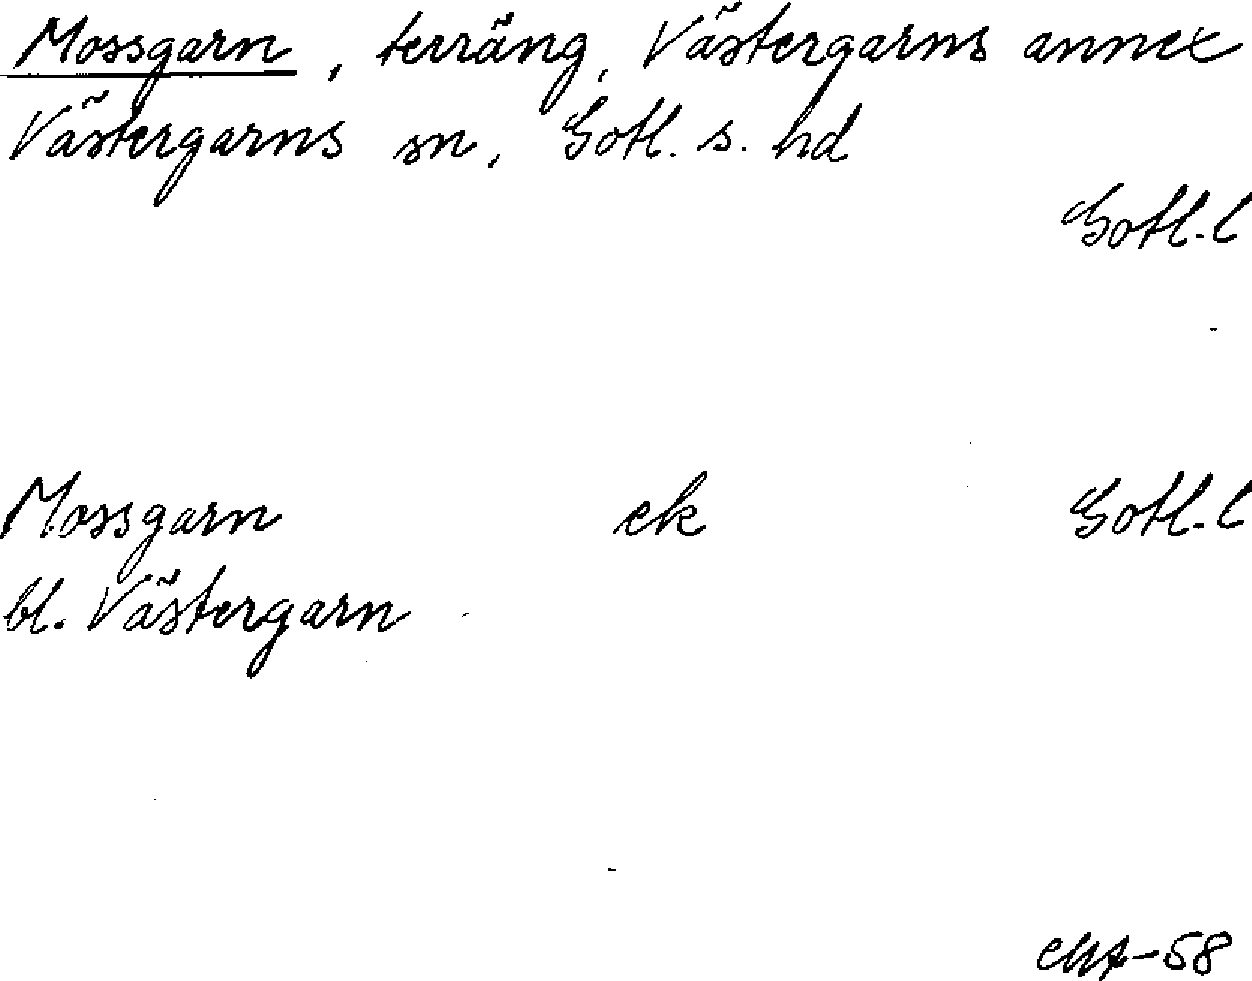 Mossgarn, terräng, Västergarns annex
Västergarns sn, Gotl. s. hd
Gotl. l
Mossgarn ek Gotl. l
bl. Västergarn
-58